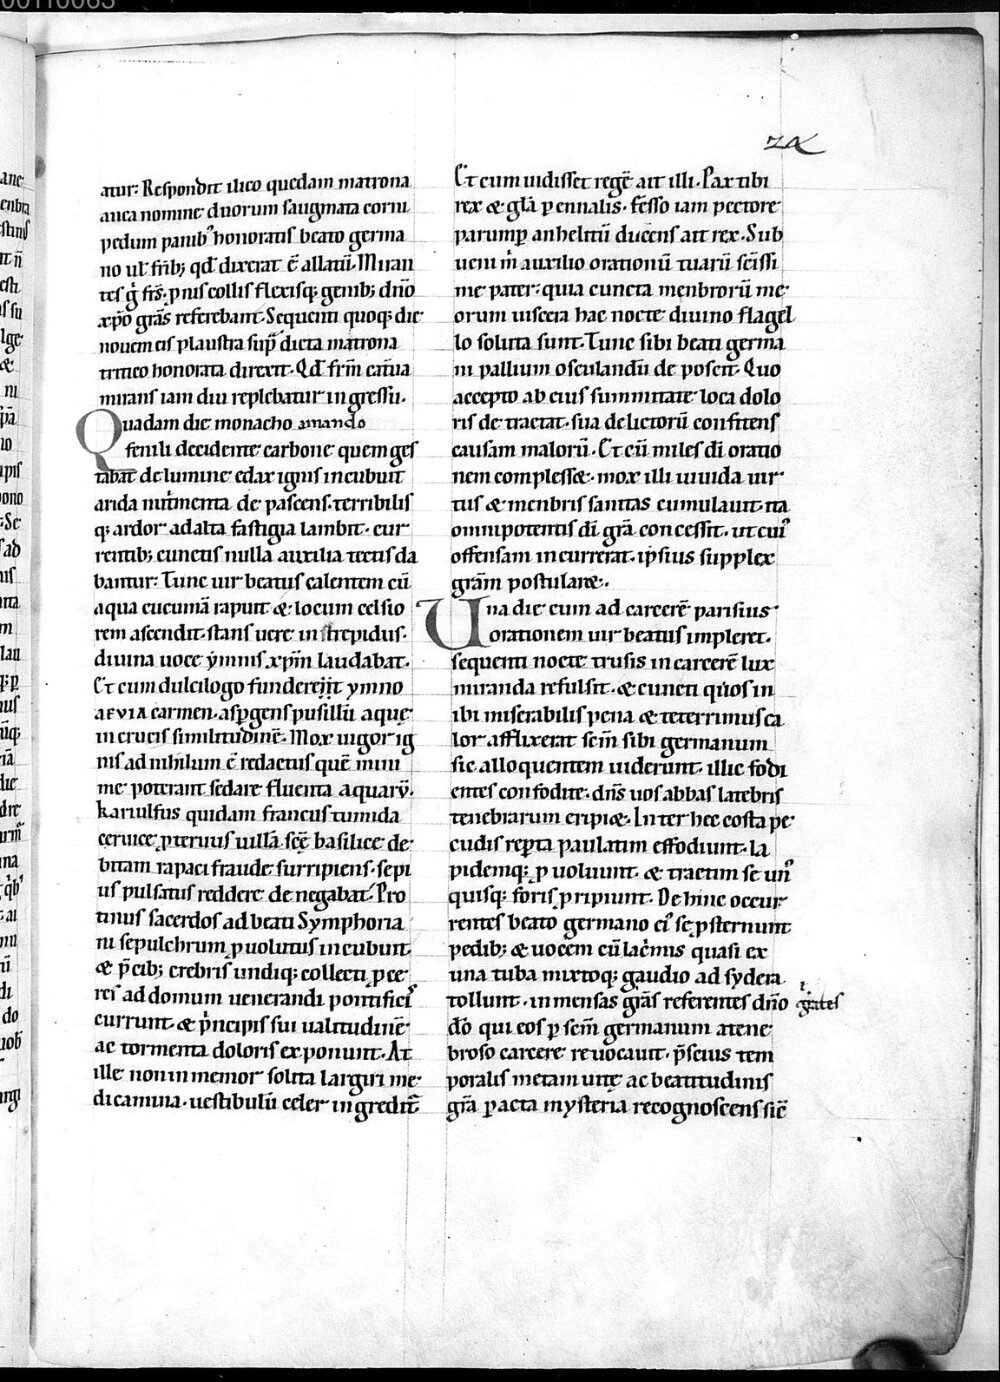 atur: Respondit ilico quedam matrona
auca nomine duorum saugmata corni
pedum panib' honoratis beato germa
no ul' fr̄ib; qđ dixerat ē allatū. Miran
tes g̊ fr̄s. pnis collis flexisq; genib; dn̄o
xp̄o grās referebant. Sequenti quoq; die
nouem eis plaustra sup dicta matrona
tritico honorata direxit. Qđ fr̄m cat̄ua
mirans iam diu replebatur ingressu.
Quadam die monacho amando
fenili decidente carbone quem ges
tabat de lumine edax ignis incubuit
arida nut̄menta depascens. terribilis
q; ardor ad alta fastigia lambit. cur
rentib; cunctis nulla auxilia tectus da
bantur: Tunc uir beatus calentem cū
aqua cucumā rapuit & locum celsio
rem ascendit. stans uero intrepidus.
diuina uoce ẏmnis xp̄m laudabat.
Et cum dulcilogo funderent ymno
aeuia carmen. aspgens pusillū aquę
in crucis similitudinē. Mox uigor ig
nis ad nihilum ē redactus quē mini
me poterant sedare fluenta aquarꝝ.
kariulfus quidam francus tumida
ceruice pteruus uillā scē basilice de
bitam rapaci fraude surripiens. sepi
us pulsatus reddere denegabat. Pro
tinus sacerdos ad beati Symphoria
ni sepulchrum puolutus incubuit.
& p̄cib; crebris undiq; collecti pce
res ad domum uenerandi pontifici'
currunt. & p̄ncipis sui ualitudinē
ac tormenta doloris exponunt. At
ille non inmemor solita largiri me
dicamina. uestibulū celer ingredit̄
00110063
zα
Et cum uidisset regē ait illi. Pax tibi
rex & glā pennalis. fesso iam pectore
parump anhelitū ducens ait rex. Sub
ueni m̄ auxilio orationū tuarū scissi
me pater: quia cuncta menbrorū me
orum uiscera hac nocte diuino flagel
lo soluta sunt. Tunc sibi beati germa
ni pallium osculandū deposcit. Quo
accepto ab eius summitate loca dolo
ris detractat. sua delictorū confitens
causam malorū. Et cū miles dī oratio
nem complesset. mox illi uiuida uir
tus & menbris sanitas cumulauit. ita
omnipotentis dī grā concessit. ut cui'
offensam incurrerat. ipsius supplex
grām postularet.
Una die cum ad carcerē parisius
orationem uir beatus impleret.
sequenti nocte trusis in carcerē lux
miranda refulsit. & cuncti quos in
ibi miserabilis pena & teterrimus ca
lor afflixerat scm̄ sibi germanum
sic alloquentem uiderunt. illic fodi
entes confodite. dn̄s uos ab bas latebris
tenebrarum eripiet. Inter hec costa pe
cudis repta paulatim effodiunt. la
pidemq; puoluunt. & tractim se un'
quisq; foris pripiunt. De hinc occur
rentes beato germano ei' se psternunt
pedib; & uocem cū lac̄mis quasi ex
una tuba mixtoq; gaudio ad sydera
tollunt. inmensas grās referentes dn̄o
gates
dō qui eos p scm̄ germanum atene
broso carcere reuocauit. p̄scius tem
poralis metam uitę ac beatitudinis
grā pacta mysteria recognoscens sic̄